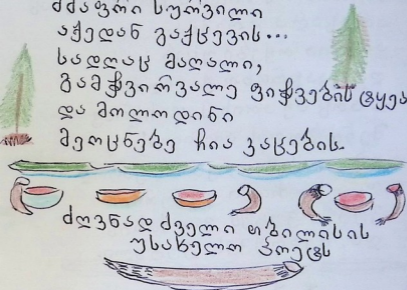 მძაფრი სურვილი
აქედან გაქცევის...
სადღაც მაღალი,
გამჭვირვალე ფიჭვების ტყეა
და მოლოდინი
მეოცნებე ჩია კაცების.
ძღვნად ძველი თბილისის
უსახელო პოეტს